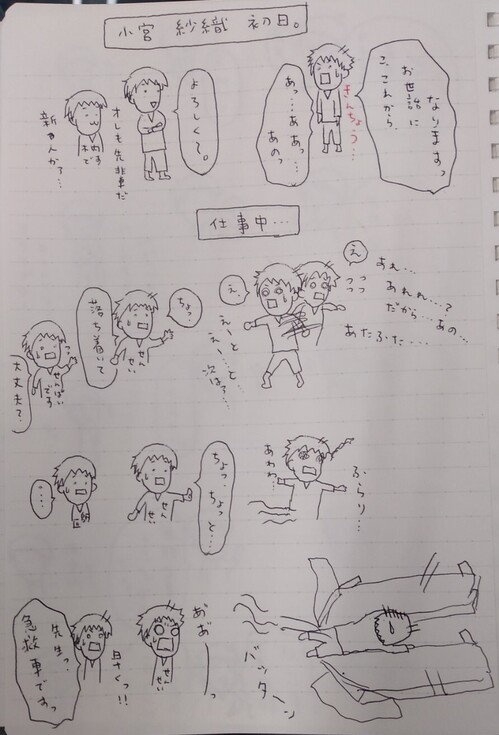 小宮 紗織 初日。
こ、これから、
お世話に
なりますっ
きんちょう…
あっ…ああっ…
あのっ
よろしく〜。
オレも先輩だ
新人か？…
仕事中…
え
あれ…
あれれ…？
だから…あの…
あたふた…
え、
えーと
えー…と…
次はァ…
ちょっ
せんせい
落ち着いて
せんぱい
です
大丈夫？
ふらり…
あわわ…
ちょっ…
ちょっと…
せんせい
・・・・
バッターン
あ゛あ゛ーっ
せんせい
早くっ!!
先生っ、
急救車ですっ